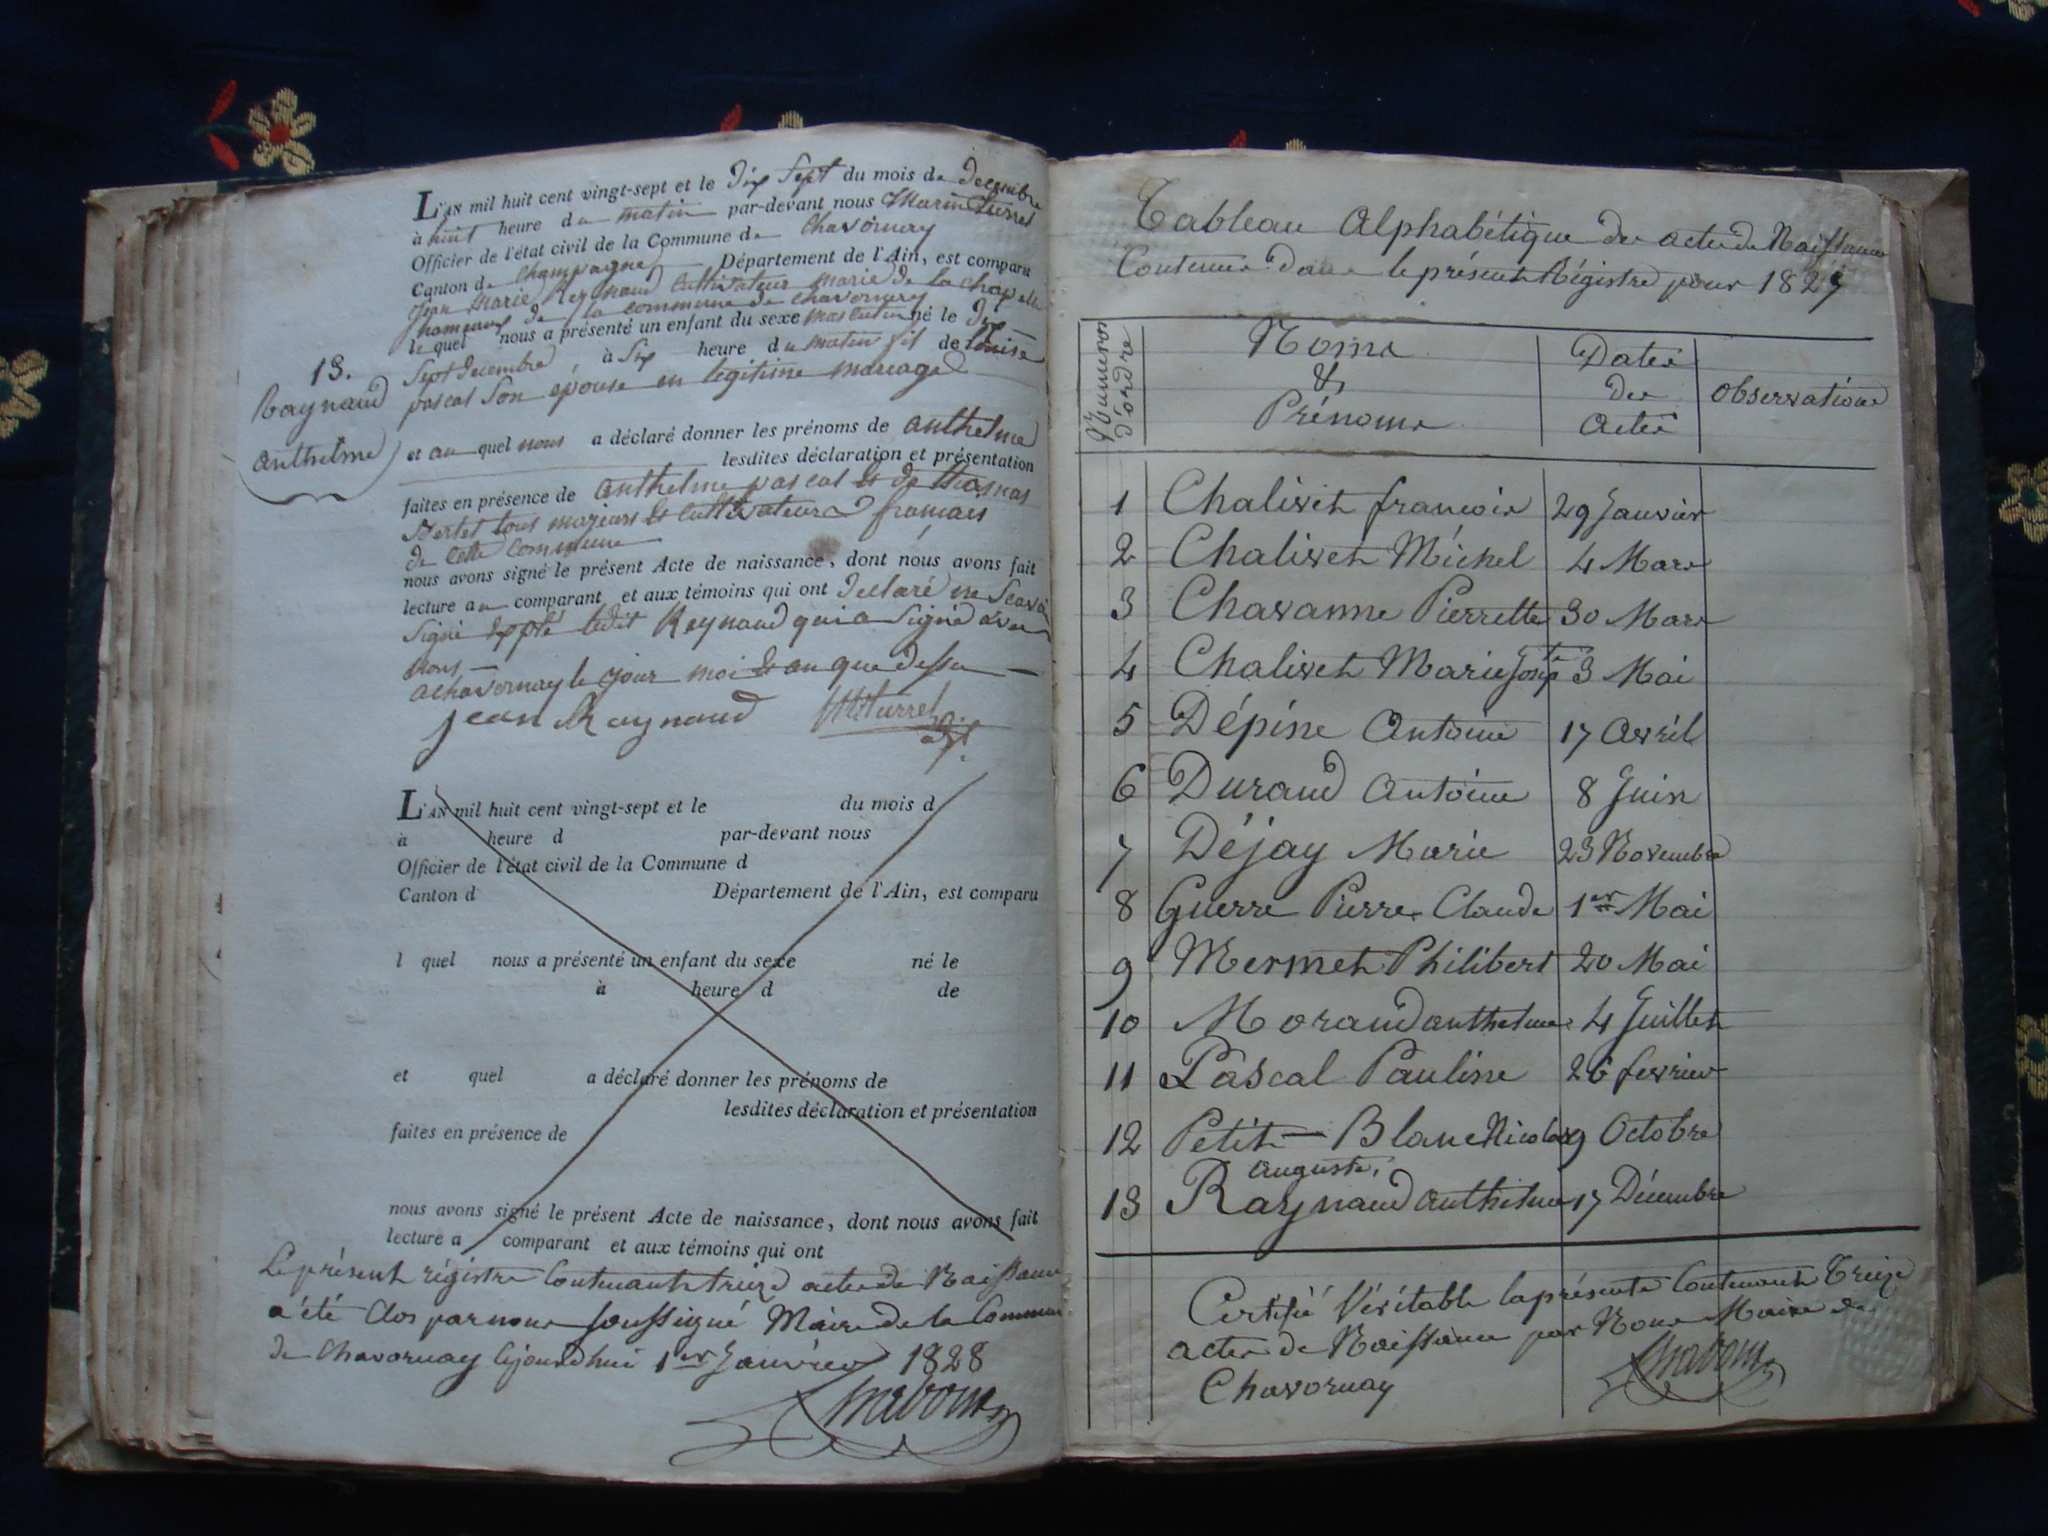 L'AN mil huit cent vingt-sept et le Dix Sept du mois de decembre
à huit heure du matin par-devant nous Marin Turrel
Officier de l'état civil de la Commune de Chavornay
Canton de Champagne Département de l'Ain, est comparu
jean marie Reynaud Cultivateur marié de la chapelle
hameaux de la commune de chavornay
lequel nous a présenté un enfant du sexe masculin né le Dix
Sept Decembre à Six heure du matin fils de Louise
pascal Son épouse en legitime mariage
13.
Raynaud
anthelme
et au quel nous a déclaré donner les prénoms de anthelme
lesdites déclaration et présentation
faites en présence de anthelme pascal et de thomas
Bertet tous majeurs et Cultivateurs français
de cette commune
nous avons signé le présent Acte de naissance, dont nous avons fait
lecture au comparant et aux témoins qui ont Declaré ne Scavoir
Signé ledit Reynaud qui a Signé avec
nous
a chavornay le jour moi et an que dessu
jean Raynaud Mturrel
L'AN mil huit cent vingt-sept et le du mois d
à heure d par-devant nous
Officier de l'état civil de la Commune d
Canton d Département de l'Ain, est comparu
l quel nous a présenté un enfant du sexe né le
à heure d de
et quel a déclaré donner les prénoms de
lesdites déclaration et présentation
faites en présence de
nous avons signé le présent Acte de naissance, dont nous avons fait
lecture a comparant et aux témoins qui ont
Le présent régistre Contenant treize actes de Naissance
a été Clos par nous soussigné Maire de la Commune
de Chavornay cejourdhui 1er Janvier 1828
Tableau Alphabétique des actes de Naissance
Contenus dans le présent Régistre pour 1827
Numéros d'ordre
Noms & Prénoms
Dates des Actes
Observations
1 Chalivet francois 29 Janvier
2 Chalivet Michel 4 Mars
3 Chavanne Pierrette 30 Mars
4 Chalivet Marie Josephte 3 Mai
5 Dépine Antoine 17 Avril
6 Durand Antoine 8 Juin
7 Déjay Marie 23 Novembre
8 Guerre Pierre Claude 1er Mai
9 Mermet Philibert 20 Mai
10 Morand anthelme 4 Juillet
11 Pascal Pauline 26 fevrier
12 Petit-Blanc Nicolas 9 Octobre
auguste
13 Raynaud anthelme 17 Décembre
Certifié Véritable la présente Contenant Treize
actes de Naissance par Nous Maire de
Chavornay